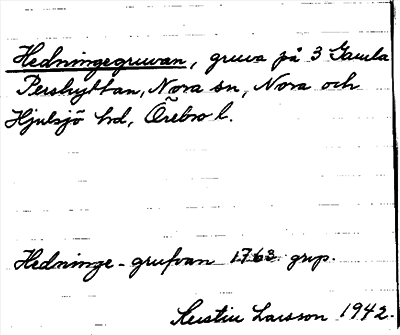 Hedningegruvan, gruva på 3 Gamla
Pershyttan, Nora sn, Nora och
Hjulsjö hd, Örebro l.
Hedninge-grufvan 1763 grvp.
Kerstin Larsson 1942.